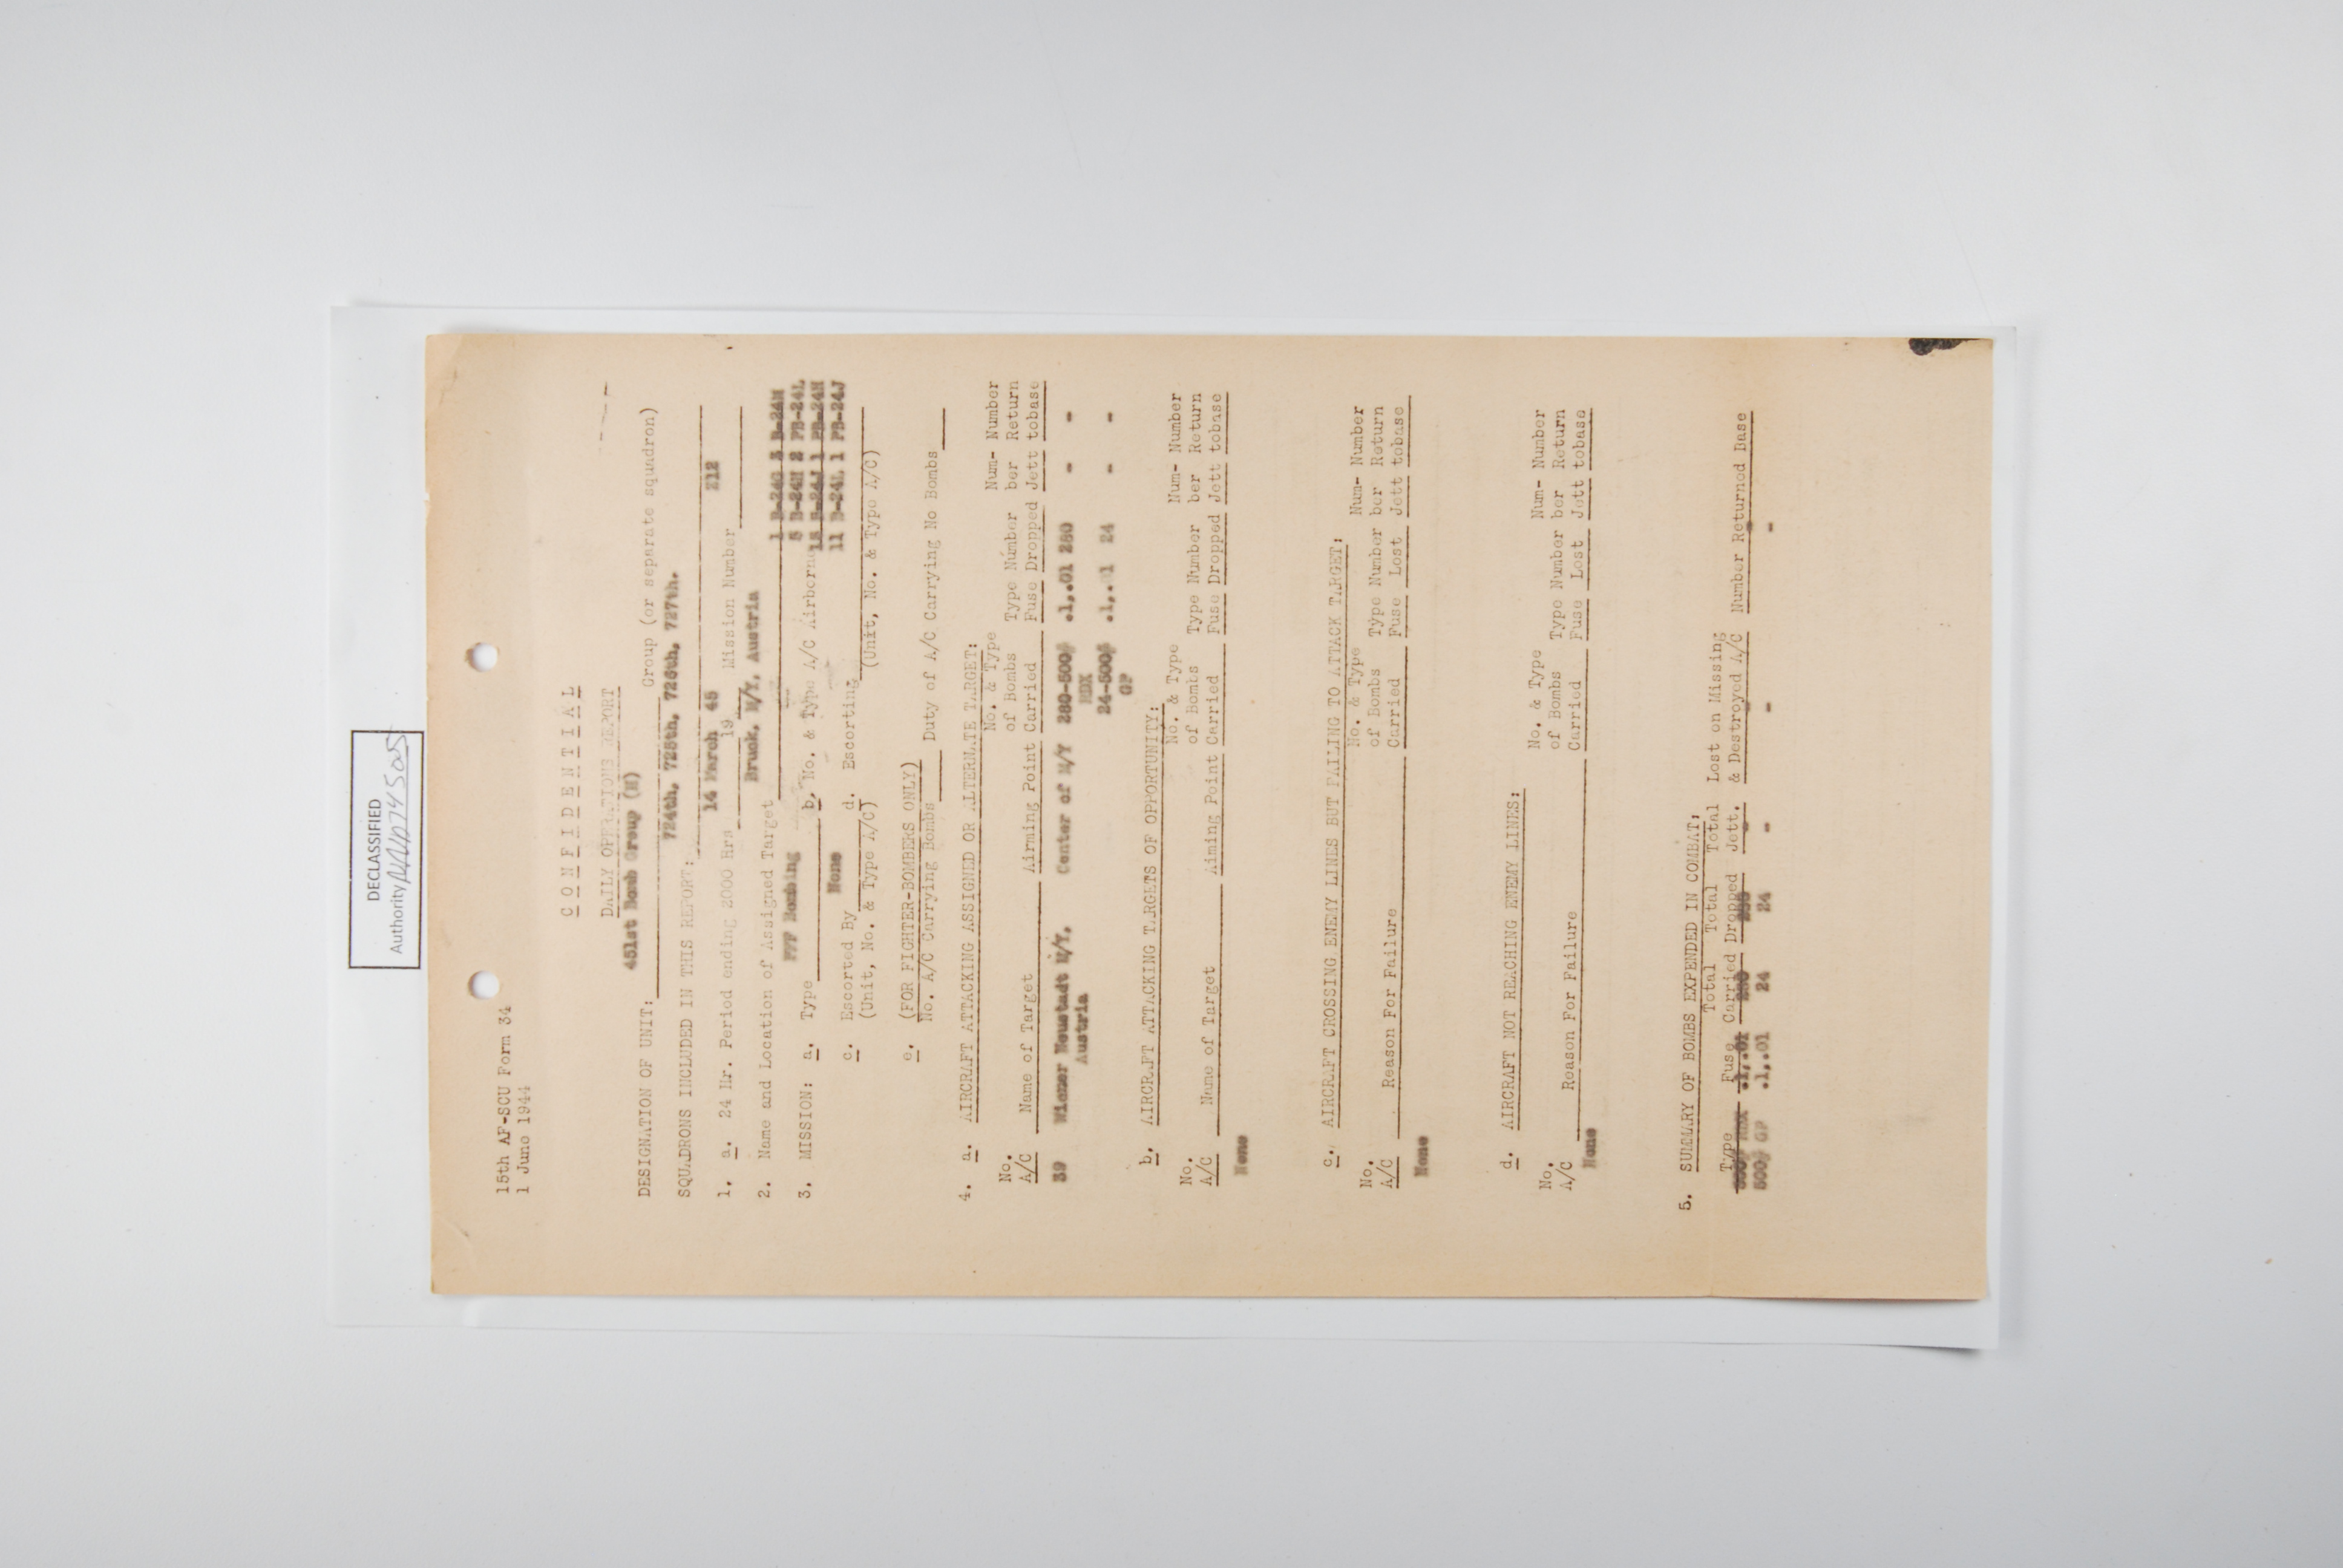 DECLASSIFIED
Authority NND745005
15th AF-SCU Form 34
1 June 1944
C O N F I D E N T I A L
DAILY OPERATIONS REPORT
DESIGNATION OF UNIT: 451st Bomb Group (H) Group (or separate squadron)
SQUADRONS INCLUDED IN THIS REPORT: 724th, 725th, 726th, 727th.
1. a. 24 Hr. Period ending 2000 Hrs 14 March 19 45 Mission Number 212
2. Name and Location of Assigned Target Bruck, M/Y, Austria
1 B-24G 3 B-24M
5 B-24H 2 PB-24L
3. MISSION: a. Type PFF Bombing b. No. & Type A/C Airborne 15 B-24J 1 PB-24H
11 B-24L 1 PB-24J
c. Escorted By None d. Escorting
(Unit, No. & Type A/C) (Unit, No. & Type A/C)
e. (FOR FIGHTER-BOMBERS ONLY)
No. A/C Carrying Bombs Duty of A/C Carrying No Bombs
4. a. AIRCRAFT ATTACKING ASSIGNED OR ALTERNATE TARGET:
No. & Type Num- Number
No. of Bombs Type Number ber Return
A/C Name of Target Airming Point Carried Fuse Dropped Jett tobase
39 Wiener Neustadt M/Y, Center of M/Y 280-500# .1,.01 280 - -
Austria RDX
24-500# .1,.01 24 - -
GP
b. AIRCRAFT ATTACKING TARGETS OF OPPORTUNITY:
No. & Type Num- Number
No. of Bombs Type Number ber Return
A/C Name of Target Aiming Point Carried Fuse Dropped Jett tobase
None
c. AIRCRAFT CROSSING ENEMY LINES BUT FAILING TO ATTACK TARGET:
No. & Type Num- Number
No. of Bombs Type Number ber Return
A/C Reason For Failure Carried Fuse Lost Jett tobase
None
d. AIRCRAFT NOT REACHING ENEMY LINES:
No. & Type Num- Number
No. of Bombs Type Number ber Return
A/C Reason For Failure Carried Fuse Lost Jett tobase
None
5. SUMMARY OF BOMBS EXPENDED IN COMBAT:
Total Total Total Lost on Missing
Type Fuse Carried Dropped Jett. & Destroyed A/C Number Returned Base
500# RDX .1,.01 280 280 - - -
500# GP .1,.01 24 24 - - -